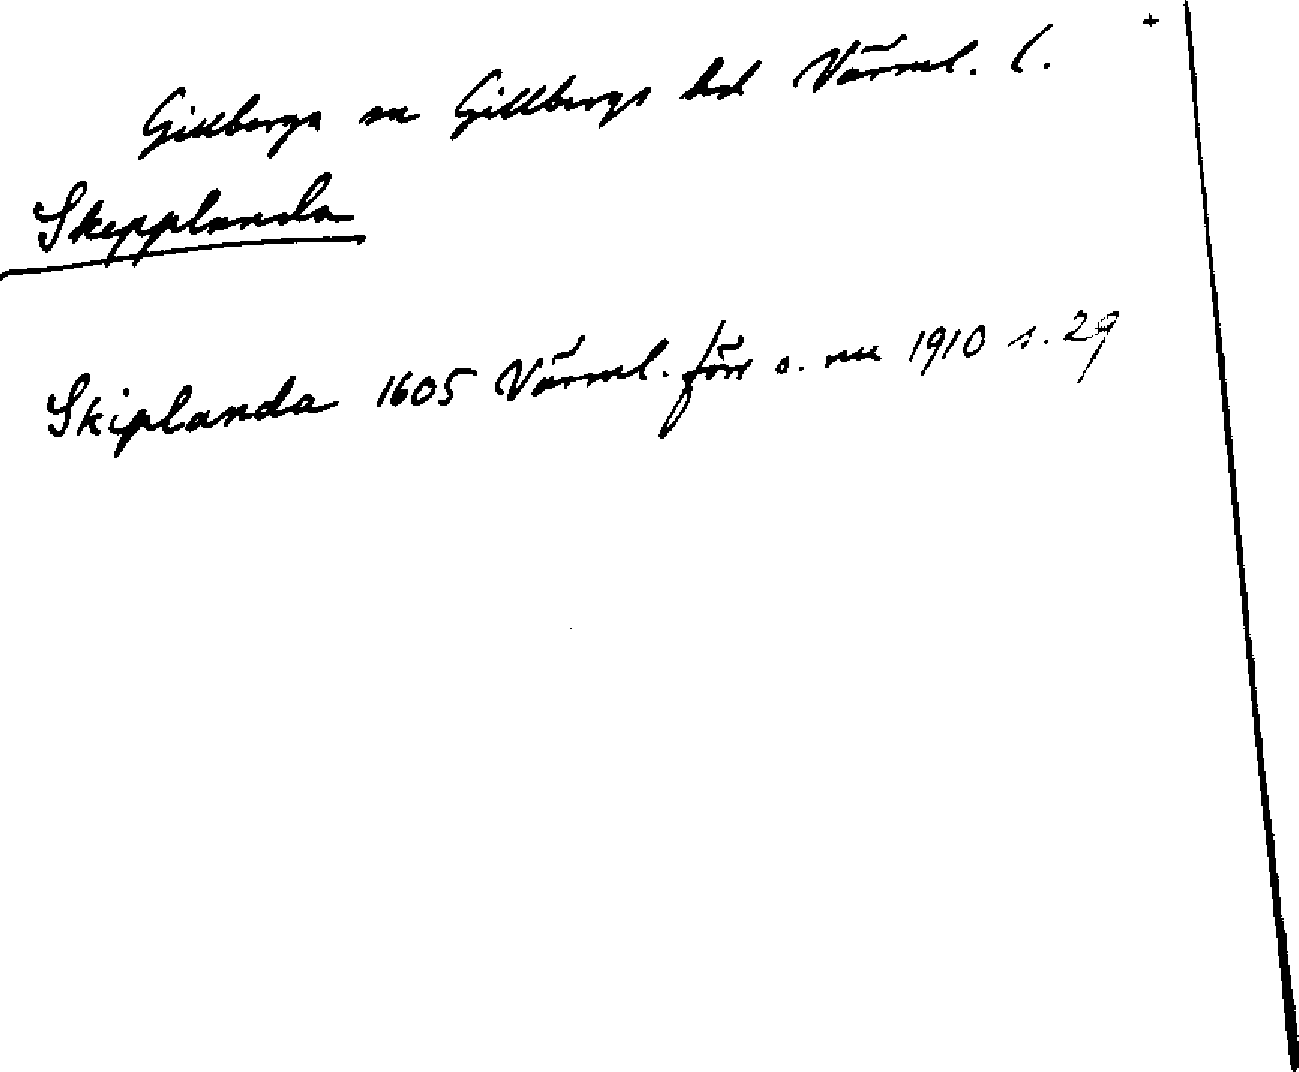 +
Gillberga sn Gillbergs hd Värml. l.
Skepplanda
Skiplanda 1605 Värml. förr o. nu 1910 s. 29